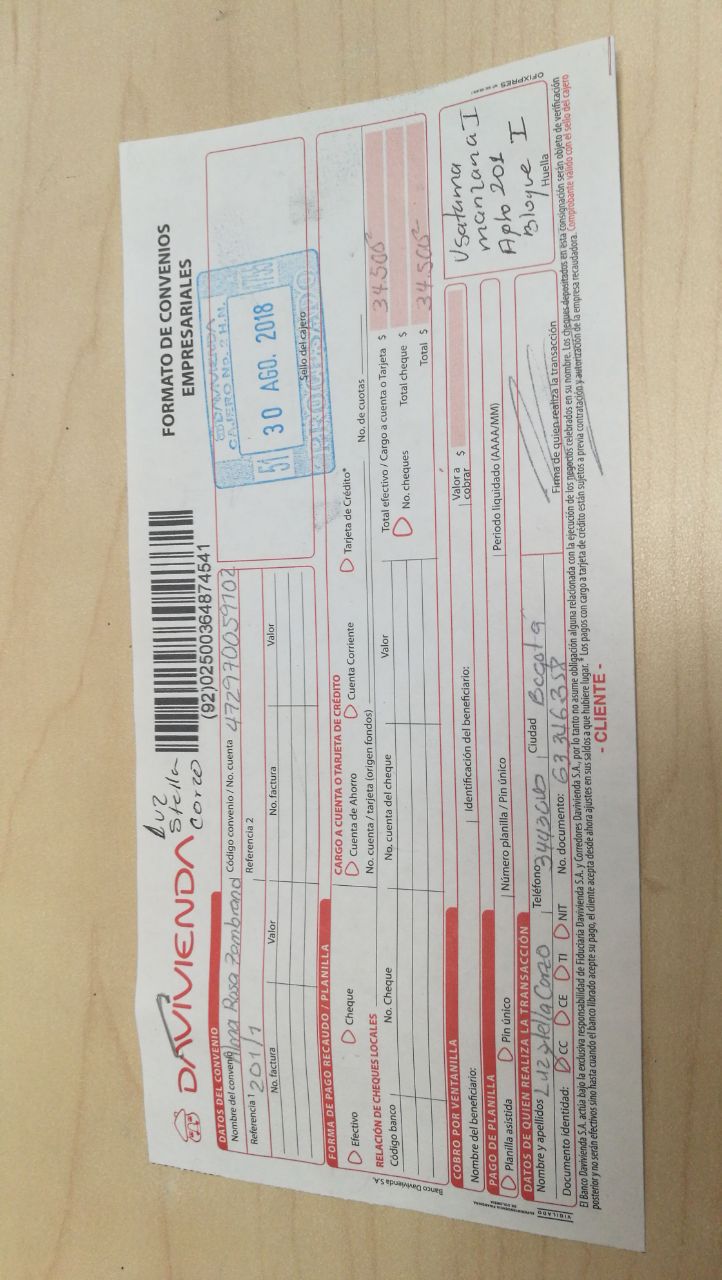 DAVIVIENDA
Luz
Stella
Corzo
(92)02500364874541
FORMATO DE CONVENIOS
EMPRESARIALES
DATOS DEL CONVENIO
Nombre del convenio Alma Rosa Zambrano Código convenio / No. cuenta 472970059102
Referencia 1 201/1 Referencia 2
No. factura Valor No. factura Valor
DAVIVIENDA
CAJERO No. 2 H.N.
51 30 AGO. 2018
Sello del cajero
FORMA DE PAGO RECAUDO / PLANILLA
Efectivo Cheque
CARGO A CUENTA O TARJETA DE CRÉDITO
Cuenta de Ahorro Cuenta Corriente Tarjeta de Crédito*
No. cuenta / tarjeta (origen fondos) No. de cuotas
RELACIÓN DE CHEQUES LOCALES
Código banco No. Cheque No. cuenta del cheque Valor
Total efectivo / Cargo a cuenta o Tarjeta $ 34.500
No. cheques Total cheque $
Total $ 34.500
COBRO POR VENTANILLA
Nombre del beneficiario: Identificación del beneficiario: Valor a cobrar $
PAGO DE PLANILLA
Planilla asistida Pin único Número planilla / Pin único Periodo liquidado (AAAA/MM)
DATOS DE QUIEN REALIZA LA TRANSACCIÓN
Nombre y apellidos Luz Stella Corzo Teléfono Ciudad Bogotá
Documento identidad: CC CE TI NIT No. documento: 63346358
Firma de quien realiza la transacción
Usatama
manzana I
Apto 201
Bloque I
Huella
El Banco Davivienda S.A. actúa bajo la exclusiva responsabilidad de Fiduciaria Davivienda S.A. y Corredores Davivienda S.A., por lo tanto no asume obligación alguna relacionada con la ejecución de los negocios celebrados en su nombre. Los cheques depositados en esta consignación serán objeto de verificación
posterior y no serán efectivos sino hasta cuando el banco librado acepte su pago, el cliente acepta desde ahora ajustes en sus saldos a que hubiere lugar. * Los pagos con cargo a tarjeta de crédito están sujetos a previa contratación y autorización de la empresa recaudadora. Comprobante válido con el sello del cajero
- CLIENTE -
Banco Davivienda S.A.
VIGILADO SUPERINTENDENCIA FINANCIERA DE COLOMBIA
OFIXPRES